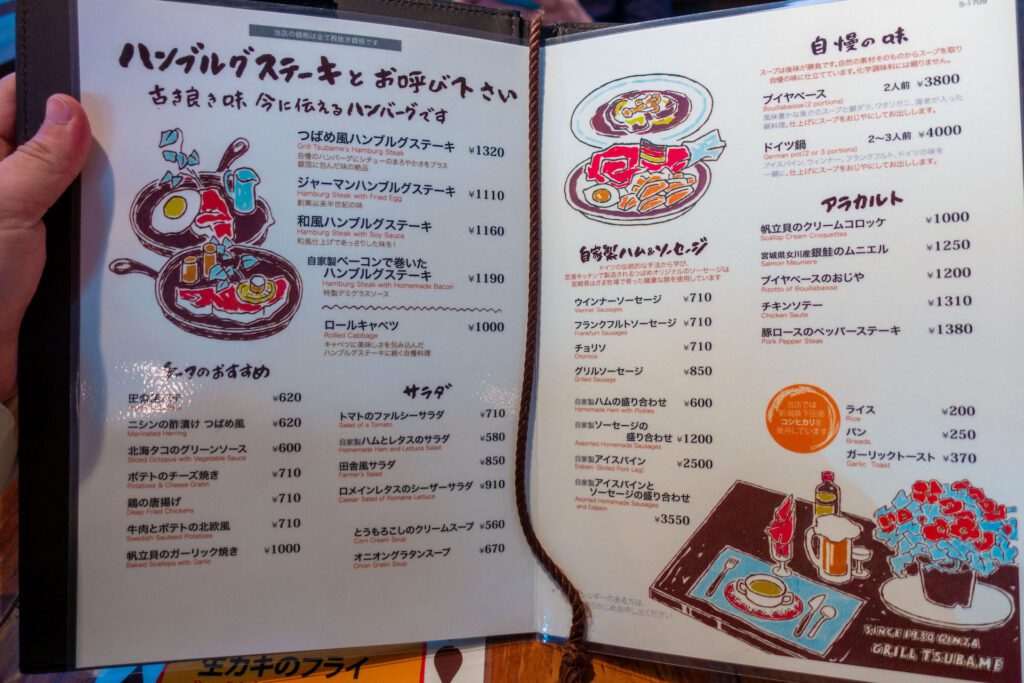 当店の価格は全て税抜き価格です
ハンブルグステーキとお呼び下さい
古き良き味 今に伝えるハンバーグです
つばめ風ハンブルグステーキ ¥1320
Grill Tsubame's Hamburg Steak
自慢のハンバーグにシチューのまろやかさをプラス
銀箔に包んだ味の絶品
ジャーマンハンブルグステーキ ¥1110
Hamburg Steak with Fried Egg
創業以来半世紀の味
和風ハンブルグステーキ ¥1160
Hamburg Steak with Soy Sauce
和風仕上げであっさりした味を!
自家製ベーコンで巻いた
ハンブルグステーキ ¥1190
Hamburg Steak with Homemade Bacon
特製デミグラスソース
ロールキャベツ ¥1000
Rolled Cabbage
キャベツに美味しさを包み込んだ
ハンブルグステーキに続く自慢料理
のおすすめ
¥620
ニシンの酢漬け つばめ風 ¥620
Marinated Herring
北海タコのグリーンソース ¥600
Sliced Octopus with Vegetable Sauce
ポテトのチーズ焼き ¥710
Potatoes & Cheese Gratin
鶏の唐揚げ ¥710
Deep Fried Chickens
牛肉とポテトの北欧風 ¥710
Swedish Sauteed Potatoes
帆立貝のガーリック焼き ¥1000
Baked Scallops with Garlic
サラダ
トマトのファルシーサラダ ¥710
Salad of a Tomato
自家製ハムとレタスのサラダ ¥580
Homemade Ham and Lettuce Salad
田舎風サラダ ¥850
Farmer's Salad
ロメインレタスのシーザーサラダ ¥910
Caesar Salad of Romaine Lettuce
とうもろこしのクリームスープ ¥560
Corn Cream Soup
オニオングラタンスープ ¥670
Onion Gratin Soup
生カキのフライ
S-1709
自慢の味
スープは後味が勝負です。自然の素材そのものからスープを取り
自慢の味に仕立てています。化学調味料には頼りません。
ブイヤベース 2人前 ¥3800
Bouillabaisse(2 portions)
風味豊かな魚介のスープと銀ダラ、ワタリガニ、海老が入った
鍋料理。仕上げにスープをおじやにしてお出しします。
ドイツ鍋 2~3人前 ¥4000
German pot(2 or 3 portions)
アイスバイン、ウィンナー、フランクフルト、ドイツの味を
一鍋に。仕上げにスープをおじやにしてお出しします。
自家製ハム&ソーセージ
ドイツの伝統的な手法から学び、
芝浦キッチンで製造されるつばめオリジナルのソーセージは
宮崎県はざま牧場で育った健康な豚を使用しています
ウインナーソーセージ ¥710
Vienner Sausages
フランクフルトソーセージ ¥710
Frankfurt Sausages
チョリソ ¥710
Chorizos
グリルソーセージ ¥850
Grilled Sausage
自家製ハムの盛り合わせ ¥600
Homemade Ham with Pickles
自家製ソーセージの
盛り合わせ ¥1200
Assorted Homemade Sausages
自家製アイスバイン ¥2500
Eisbein (Boiled Pork Leg)
自家製アイスバインと
ソーセージの盛り合わせ
Assorted Homemade Sausages
and Eisbein
¥3550
アラカルト
帆立貝のクリームコロッケ ¥1000
Scallop Cream Croquettes
宮城県女川産銀鮭のムニエル ¥1250
Salmon Meuniere
ブイヤベースのおじや ¥1200
Rizotto of Bouillabaisse
チキンソテー ¥1310
Chicken Saute
豚ロースのペッパーステーキ ¥1380
Pork Pepper Steak
当店では
新潟県下田産
コシヒカリを
使用しています
ライス ¥200
Rice
パン ¥250
Breads
ガーリックトースト ¥370
Garlic Toast
ルギーのある方は、
かじめお申し出ください
SINCE 1930 GINZA
GRILL TSUBAME